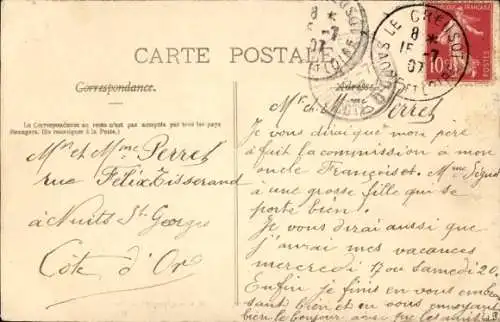 CARTE POSTALE
Correspondance.
Adresse
La Correspondance au recto n'est pas acceptée par tous les pays
étrangers. (Se renseigner à la Poste.)
LE CREUSOT
8 *
15 -7
07
SAONE-ET-LOIRE
8 *
-7
07
ET LOIRE
10
POSTES
Mr et Mme Perret
rue Félix Tisserand
à Nuits St. Georges
Côte d'Or
Mr et Mme Perret
Je vous dirai que mon père
a fait la commission à mon
oncle Françoiset. Mme
a une grosse fille qui se
porte bien.
Je vous dirai aussi que
j'aurai mes vacances
mercredi 17 ou Samedi 20.
Enfin Je finis en vous embras
sant bien et en vous envoyant
bien le bonjour avec